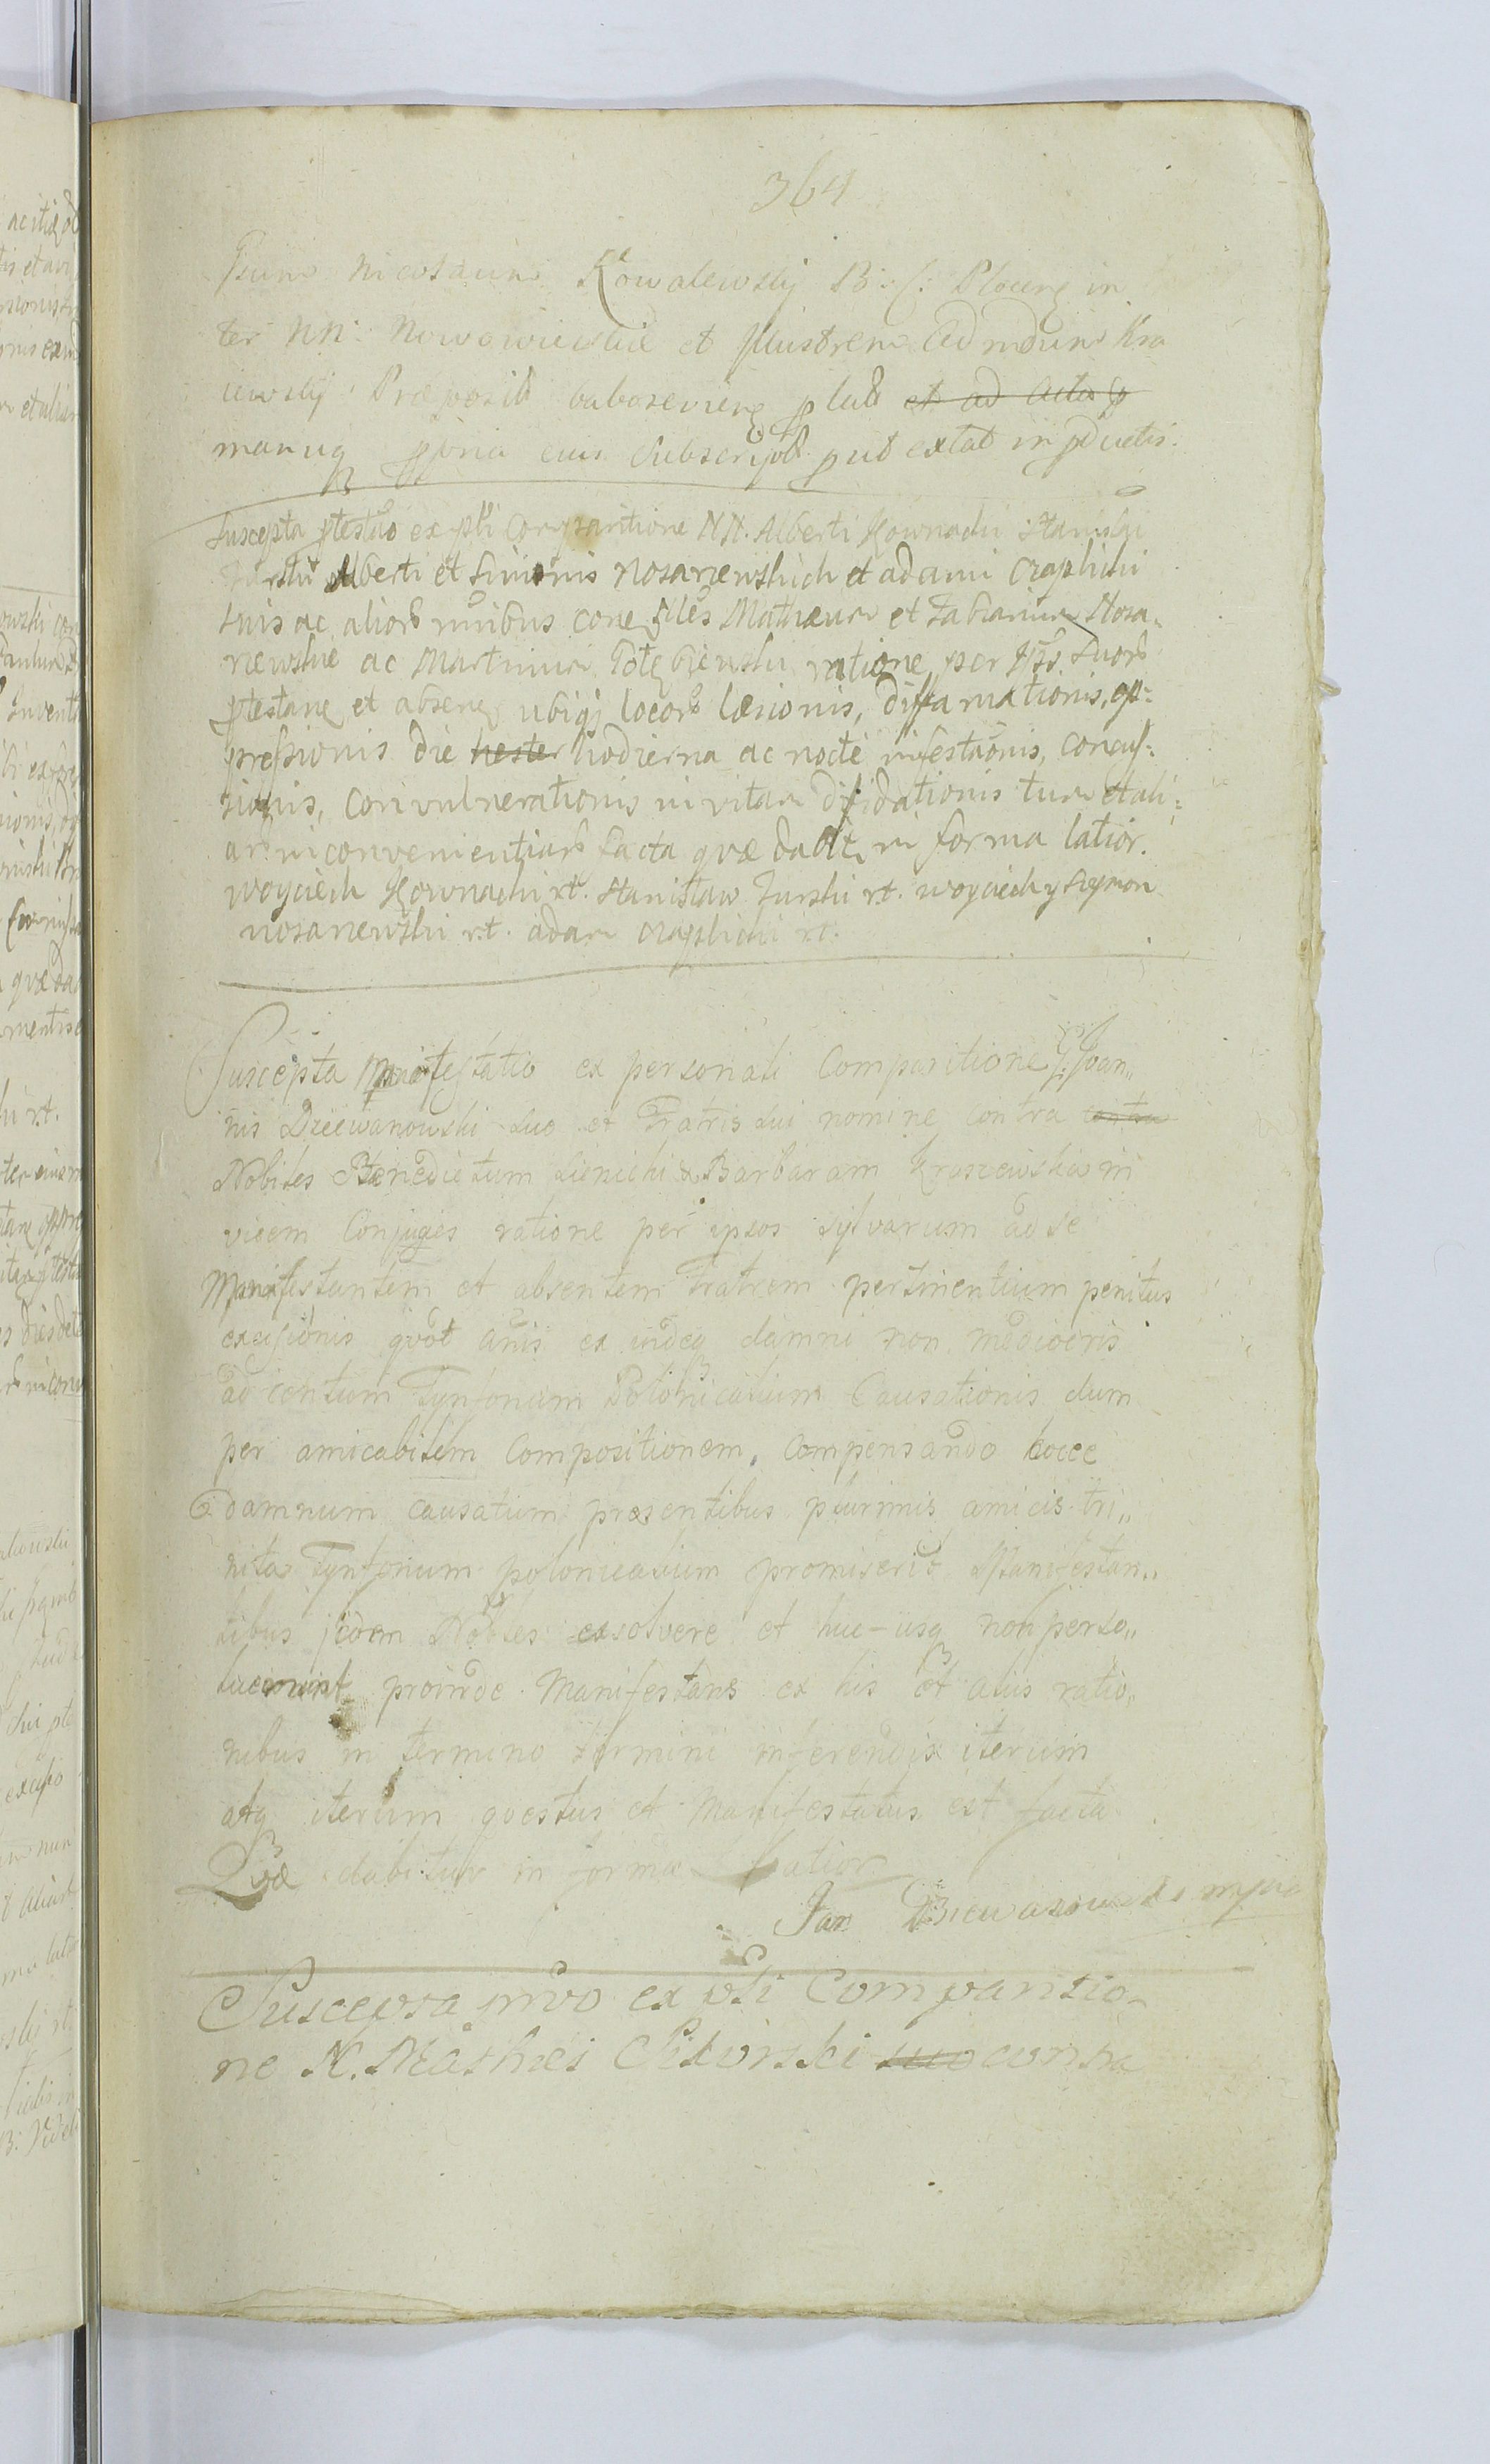 364
Nicolaum Kowalewskij B. C. Plocen in
ter NN: Nowowieiskie et Illustrem Admdum Kra
iewskij Præposit baboseviens plat et ad Acta p
manuq ppria eius Subscript put extat in pductis.
Suscepta ptestao ex psli Comparitione NN. Alberti Kownacki Stanislai
Jurski Alberti et Simonis Nosarzewskich et adami Czaplicki
suis ac alior nnibus cone Files Mathæum et Fabianum Nosa-
rzewskie ac Martinum ratione per Ipsos Suor
ptestan et absen ubiqj locor læsionis, diffamationis, op=
pressionis die hester hodierna ac nocte infestaonis, concus=
sionis, convulnerationis in vitam difidationis tum et ali=
ar inconvenientiar facta quæ dabitr in forma latior.
Woyciech Kownacki rt. Stanisław Jurski rt. Woyciech y Szymon
nosarzewski rt. adam Czaplicki rt.
Suscepta Manifestatio ex personali Comparitione G. Joan„
nis Dziewanowski suo et Fratris sui nomine contra contra
Nobiles Benedictum Sienicki & Barbaram Kraszewskie in
vicem Conjuges ratione per ipsos sylvarum ad se
Manifestantem et absentem Fratrem pertinentium penitus
excisionis qvot anis ex indeq damni non mediocris
ad centum Tynfonum Polonicalium Causationis dum
per amicabilem Compositionem, Compensando hocce
damnum causatum præsentibus plurimis amicis tri„
nita Tynfonum polonicalium promiserit Manifestan„
tibus jidem Nobles exsolvere et huc-usq non perso„
luerunt proinde Manifestans ex his et aliis ratio„
nibus in termino termini inferendis iterum
atq iterum qvestus et Manifestatus est facta
Qvæ dabitur in forma latior
Jan Dziewanowski mpria
Suscepta pnvo ex psli Comparitio-
ne N. Mathei Sikorski suo contra